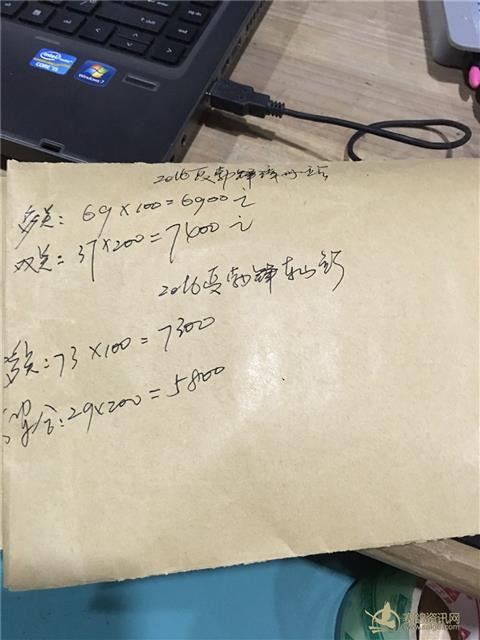 intel
CORE i5
Windows 7
2016夏勃锋漳州一站
多关：69×100=6900元
双关：37×200=7400元
2016夏勃锋东山站
多关：73×100=7300
综合：29×200=5800
赛鸽资讯网